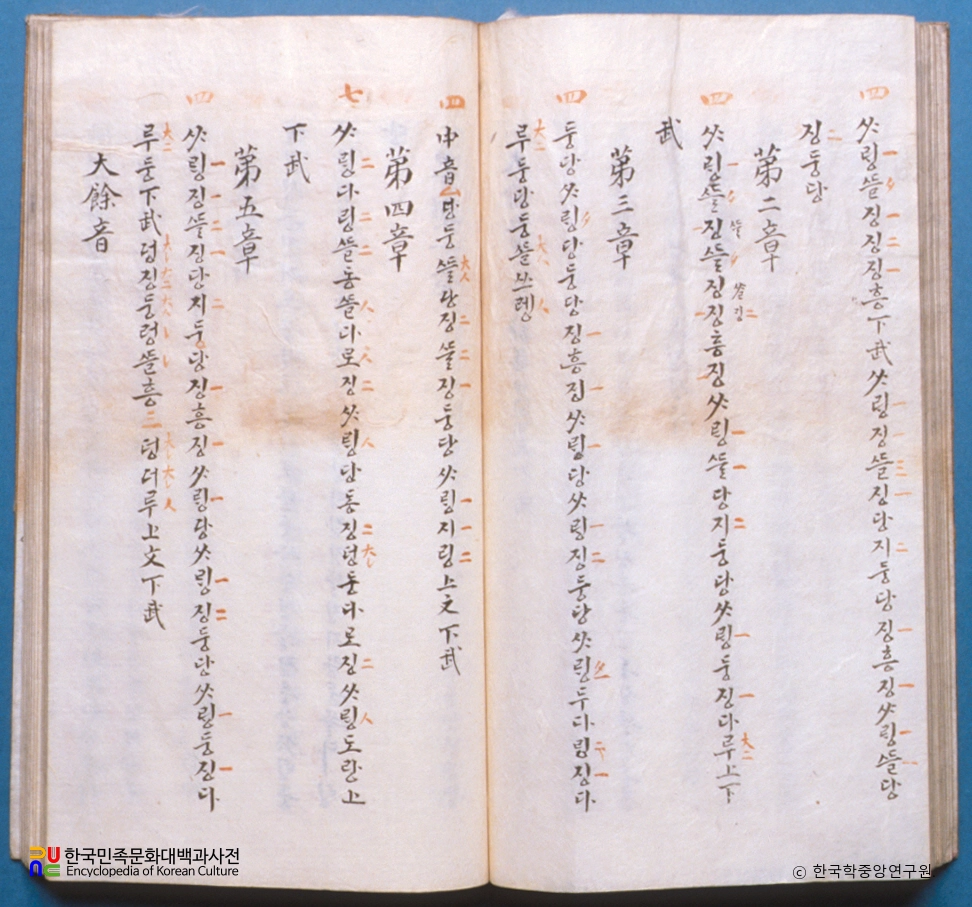 四
ᄊᆞ링뜰징징징흥下武ᄊᆞ링징뜰징당지둥당징흥징ᄊᆞ링뜰당
징둥당
第二章
四
ᄊᆞ링뜰징뜰징징흥징ᄊᆞ링뜰당지둥당ᄊᆞ링둥징다루上下
武
第三章
四
둥당ᄊᆞ링당둥당징흥징ᄊᆞ링당ᄊᆞ링징둥당ᄊᆞ링두다링징다
루둥당둥뜰쓰렝
四
中音당둥뜰당징뜰징둥당ᄊᆞ링지링上文下武
第四章
七
ᄊᆞ링다링뜰동뜰다로징ᄊᆞ링당동징덩동다로징ᄊᆞ링도랑上
下武
第五章
四
ᄊᆞ링징뜰징당지둥당징흥징ᄊᆞ링당ᄊᆞ링징둥당ᄊᆞ링둥징다
루둥下武덩징둥렁뜰흥二덩더루上文下武
大餘音
한국민족문화대백과사전
Encyclopedia of Korean Culture
ⓒ 한국학중앙연구원